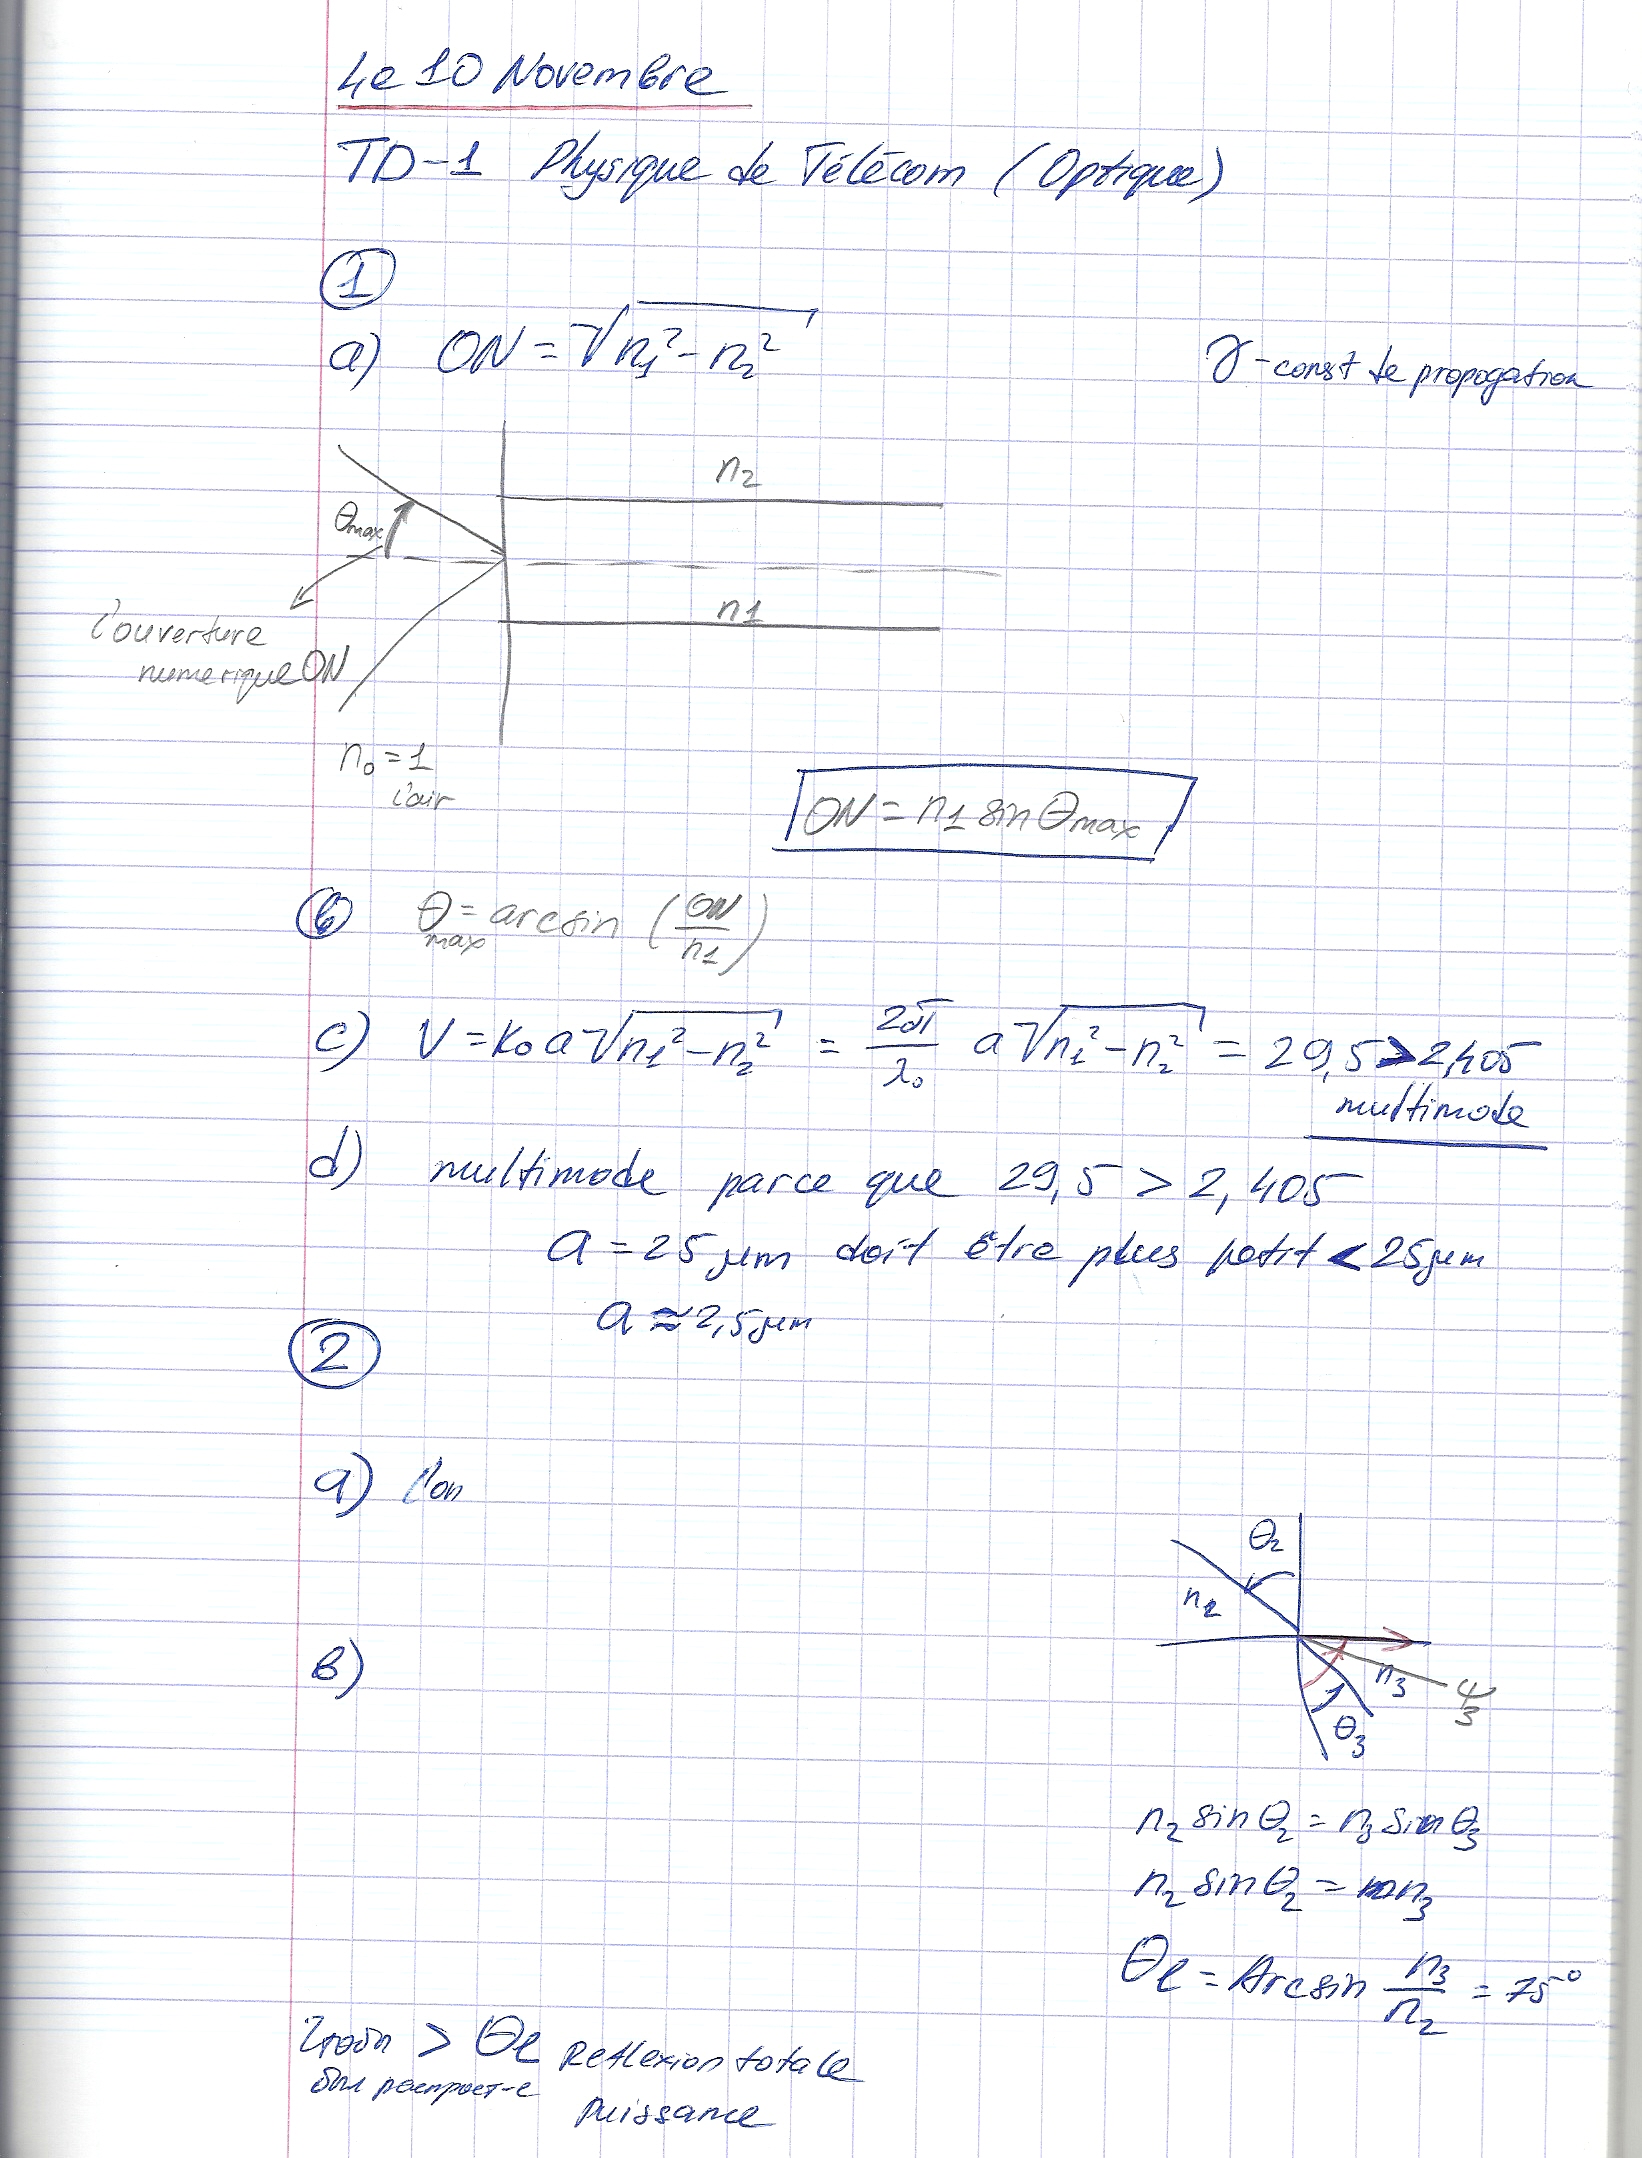 Le 10 Novembre
TD-1 Physique de Télécom (Optique)
1
a) ON = √n₁² - n₂²
γ - const de propogation
n2
θmax
n1
l'ouverture
numerique ON
n₀ = 1
l'air
ON = n1 sin θmax
b θmax = arcsin (ON/n1)
c) V = K₀ a √n₁² - n₂² = 2π/λ₀ a √n₁² - n₂² = 29,5 > 2,405
multimode
d) multimode parce que 29,5 > 2,405
a = 25 μm doit être plus petit < 25 μm
a ≈ 2,5 μm
2
a) l'on
θ₂
n₂
n₃
θ₃
в)
n₂ sin θ₂ = n₃ sin θ₃
n₂ sin θ₂ = n₃
θℓ = Arcsin n₃/n₂ = 75°
чтобы > θℓ Reflexion totale
был распрост-е
Puissance